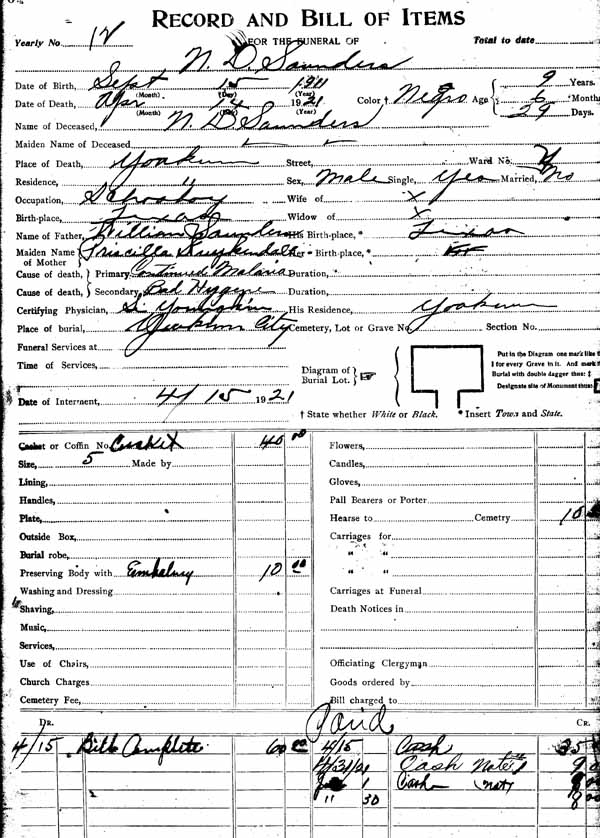 RECORD AND BILL OF ITEMS
Yearly No. 12 FOR THE FUNERAL OF Total to date
N. D. Saunders
Date of Birth, Sept 15 1911 9 Years.
(Month) (Day) (Year)
Date of Death, Apr 14 1921 Color † Negro Age 6 Months
(Month) (Day) (Year)
29 Days.
Name of Deceased, N. D. Saunders
Maiden Name of Deceased,
Place of Death, Yoakum Street, Ward No.
Residence, " Sex, Male Single, Yes Married, No
Occupation, School boy Wife of X
Birth-place, Texas Widow of X
Name of Father, William Saunders His Birth-place,* Texas
Maiden Name of Mother Priscilla Kuykendall Her Birth-place,*
Cause of death, Primary Continued Malaria Duration,
Cause of death, Secondary, Bad Hygene Duration,
Certifying Physician, His Residence, Yoakum
Place of burial, Yoakum City Cemetery, Lot or Grave No. Section No.
Funeral Services at
Time of Services,
Diagram of Burial Lot.
Put in the Diagram one mark like
for every Grave in it. And mark
Burial with double dagger thus: ‡
Designate site of Monument thus:
Date of Interment, 4/15 1921
† State whether White or Black. * Insert Town and State.
Casket or Coffin No. Casket 40 00 Flowers,
Size, 5 Made by Candles,
Lining, Gloves,
Handles, Pall Bearers or Porter
Plate, Hearse to Cemetry 10
Outside Box, Carriages for
Burial robe, " "
Preserving Body with Embalming 10 00 " "
Washing and Dressing Carriages at Funeral
Shaving, Death Notices in
Music,
Services,
Use of Chairs, Officiating Clergyman
Church Charges Goods ordered by
Cemetery Fee, Bill charged to
DR. Paid CR.
4/15 Bill Complete 60 00 4/15 Cash 35
Cash Note 9
1 Cash Note 8
" 30 8